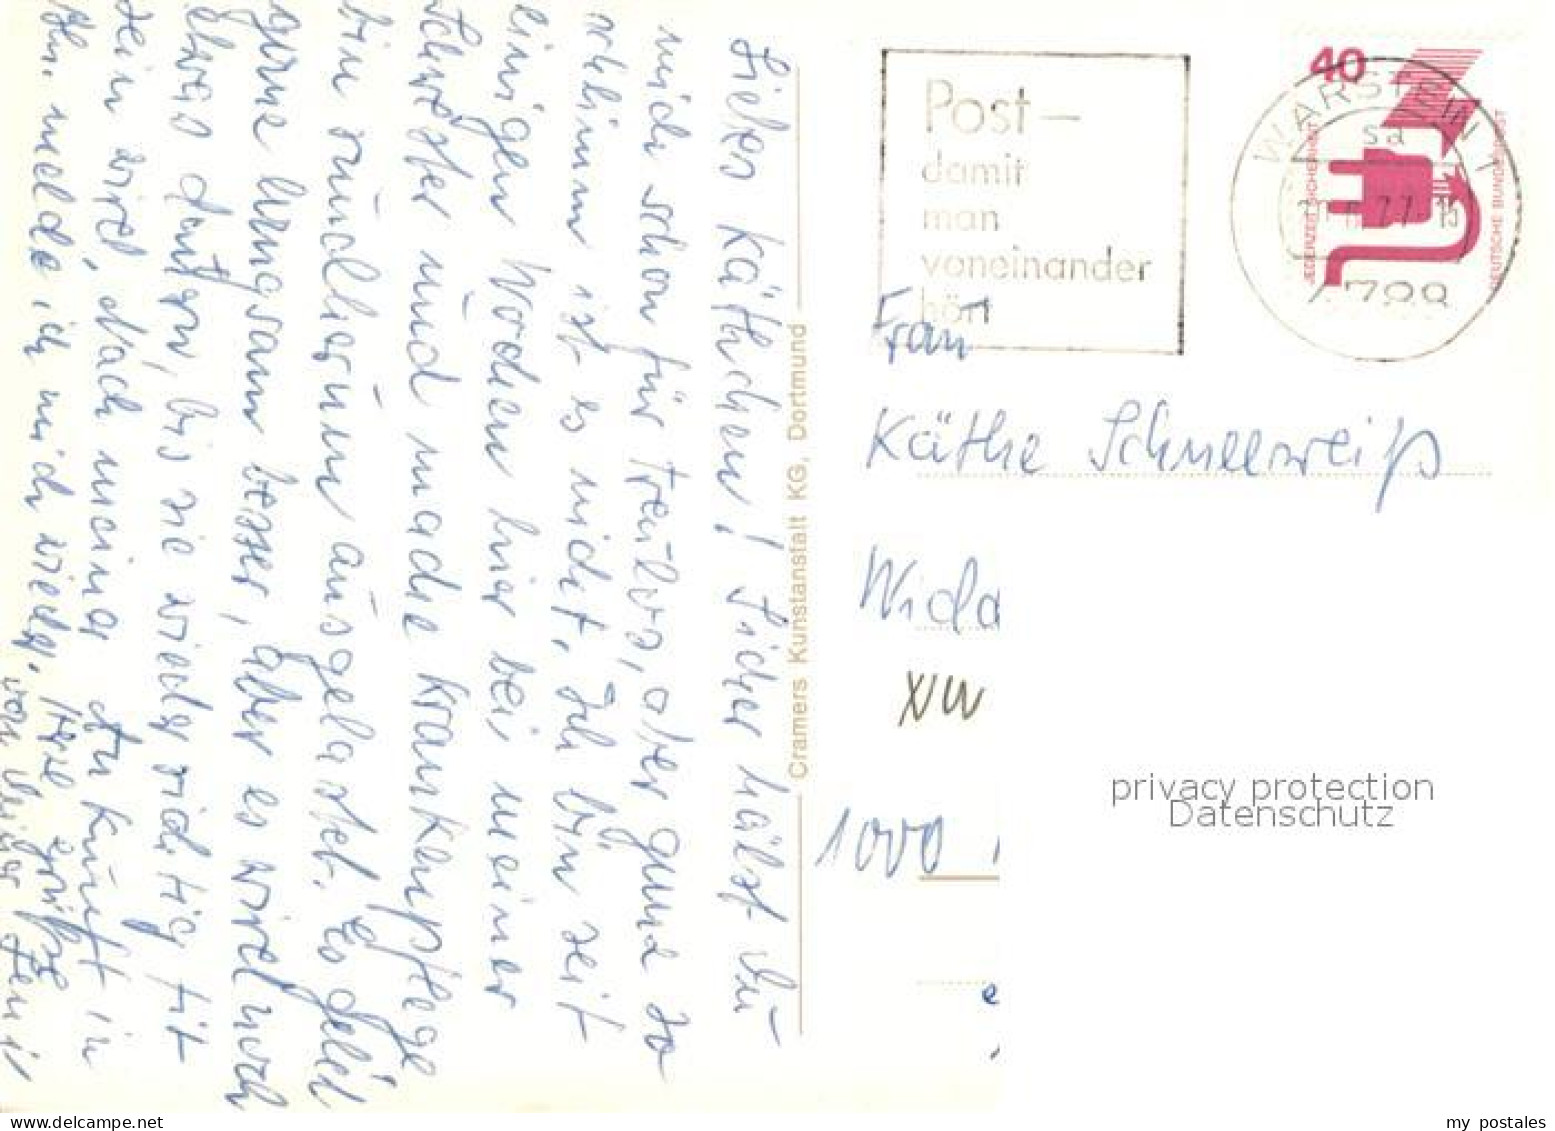 Liebes Käthchen! Sicher hälst Du
mich schon für treulos, aber ganz so
schlimm ist es nicht. Ich bin seit
einigen Wochen hier bei meiner
Schwester und mache Krankenpflege
bin rundherum ausgelastet. Es geht
ganz langsam besser, aber es wird noch
etwas dauern, bis sie wieder richtig fit
sein wird, nach meiner Ankunft in
melde ich mich wieder. Grüße
von Deiner
Cramers Kunstanstalt KG, Dortmund
Post-
damit
man
voneinander
hört
40
JEDERZEIT SICHERHEIT
DEUTSCHE BUNDESPOST
WARSTEIN 1
Frau
Käthe Schneeweiß
1000
privacy protection
Datenschutz
oldthing.de
my postales